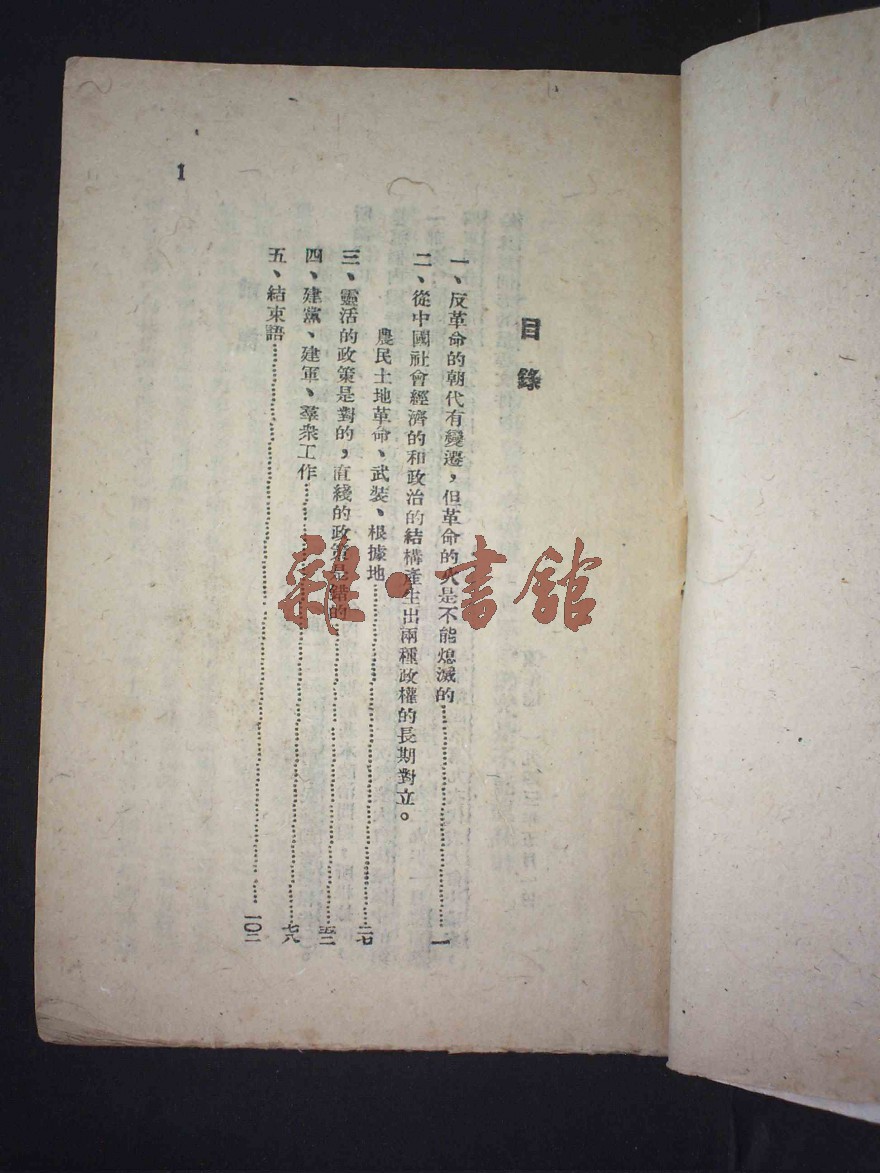 目錄
一、反革命的朝代有變遷，但革命的火是不能熄滅的……一
二、從中國社會經濟的和政治的結構產生出兩種政權的長期對立。
農民土地革命、武裝、根據地……二七
三、靈活的政策是對的，直綫的政策是錯的……五三
四、建黨、建軍、羣衆工作……七八
五、結束語……一〇二
1
雜·書館